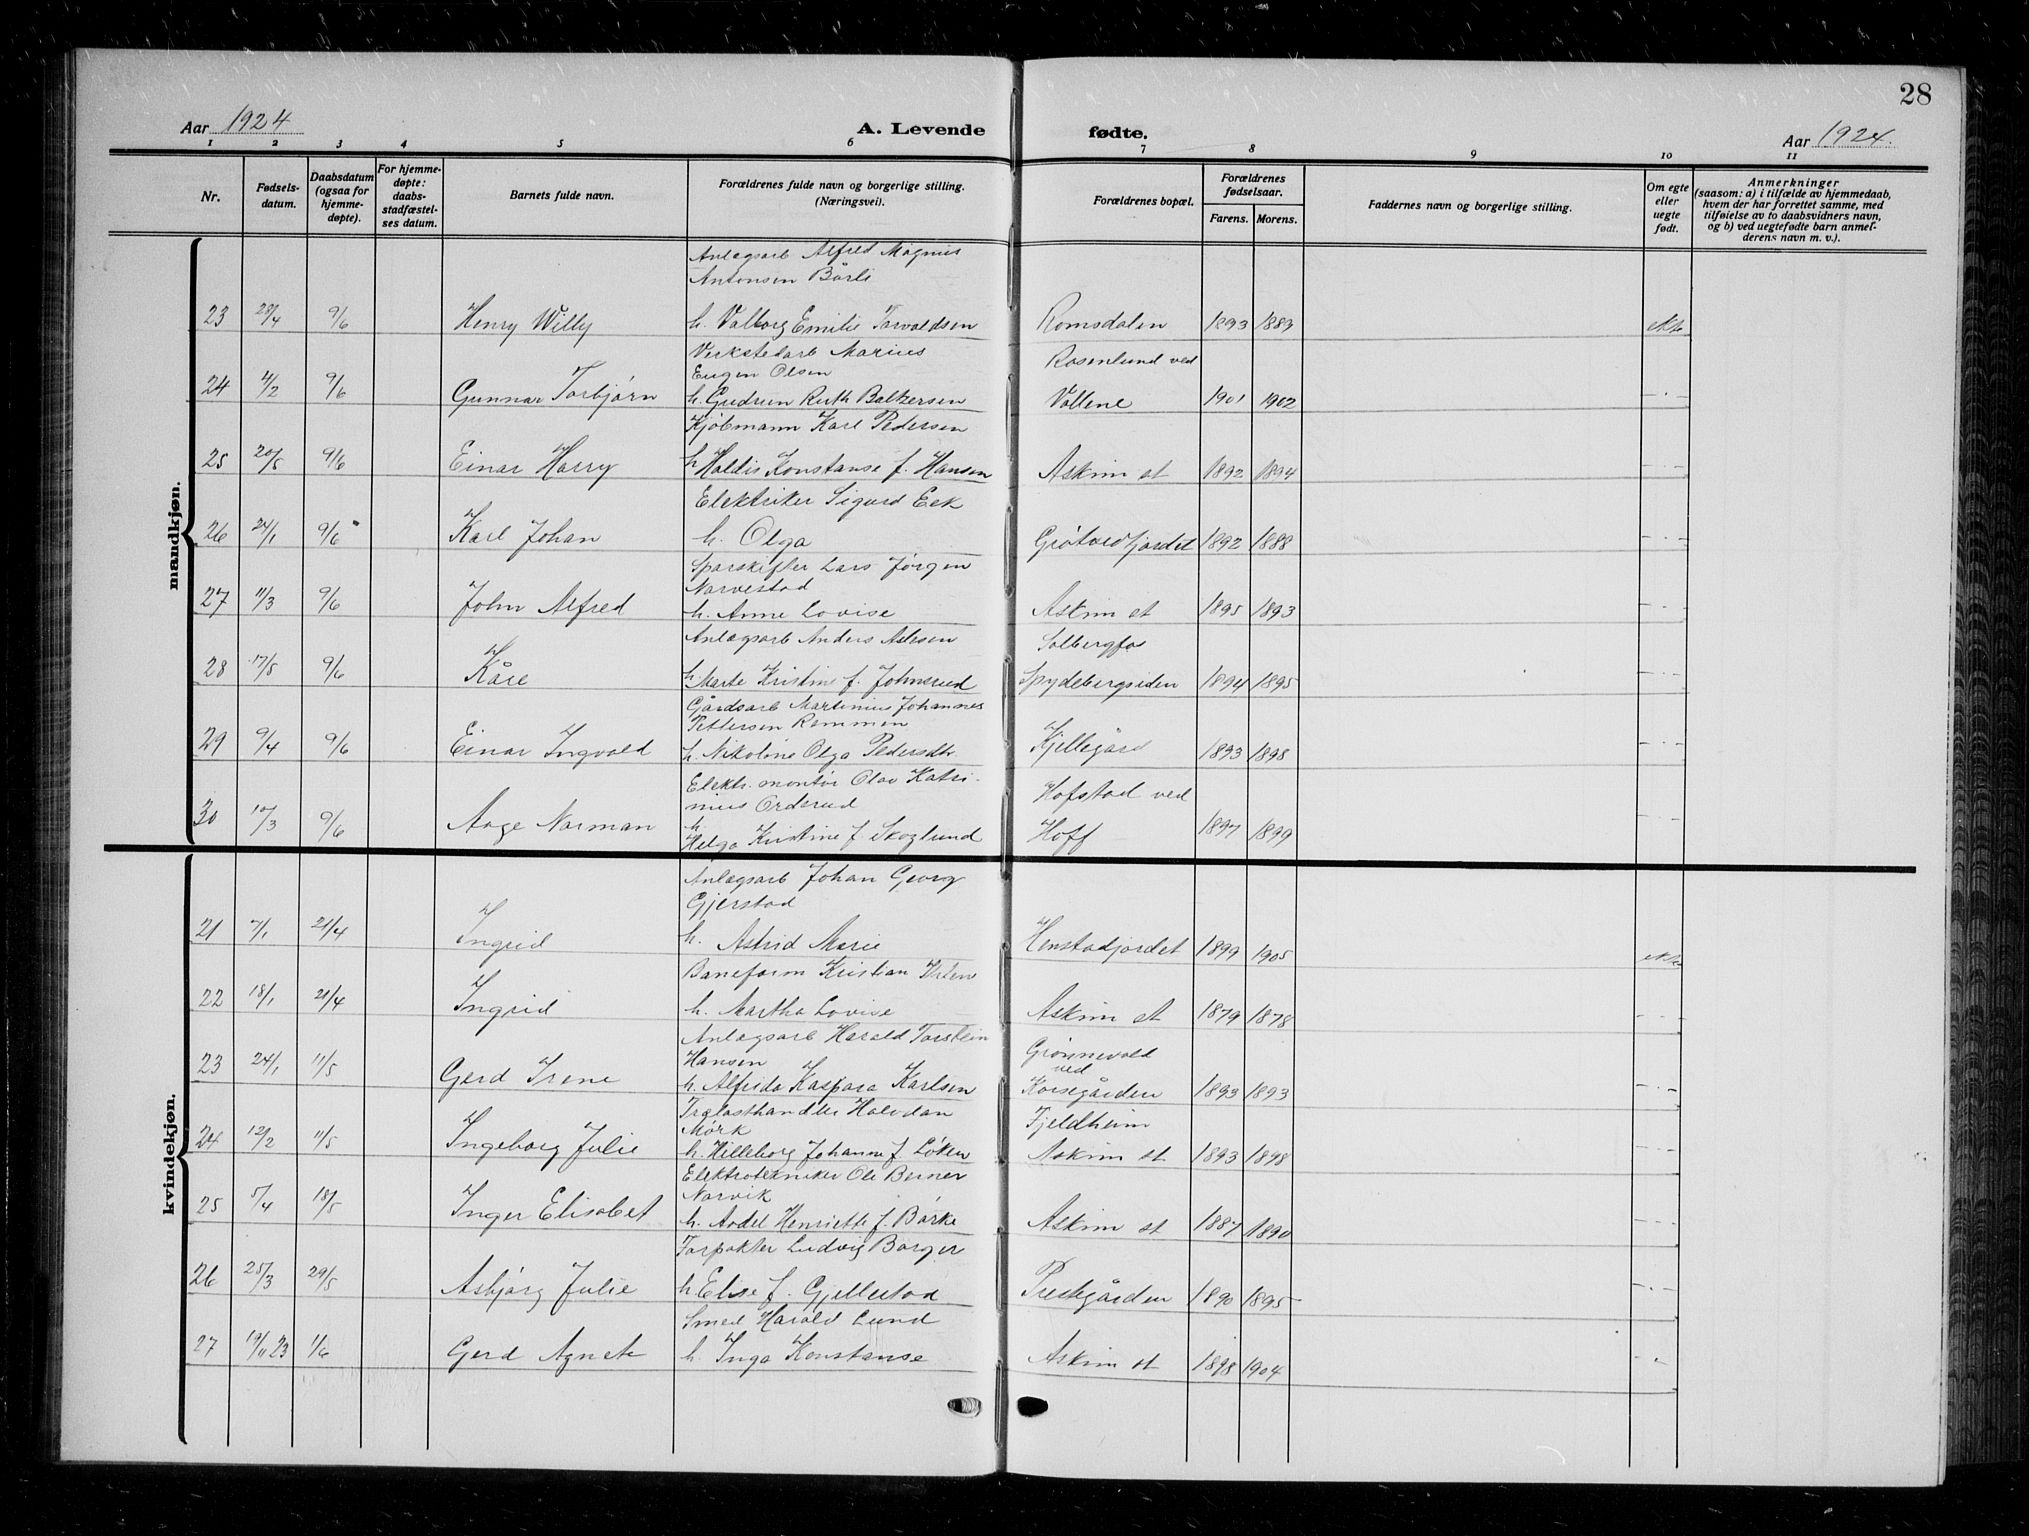 28
Aar 1924
A. Levende fødte.
Aar 1924.
1 2 3 4 5 6 7 8 9 10 11
Nr.
Fødsels-
datum.
Daabsdatum
(ogsaa for
hjemme-
døpte).
For hjemme-
døpte:
daabs-
stadfæstel-
ses datum.
Barnets fulde navn.
Forældrenes fulde navn og borgerlige stilling.
(Næringsvei).
Forældrenes bopæl.
Forældrenes
fødselsaar.
Farens. Morens.
Faddernes navn og borgerlige stilling.
Om egte
eller
uegte
født.
Anmerkninger
(saasom: a) i tilfælde av hjemmedaab,
hvem der har forrettet samme, med
tilføielse av to daabsvidners navn,
og b) ved uegtefødte barn anmel-
derens navn m. v.).
mandkjøn.
Anlægsarb Alfred Magnus
Antonsen Bårli
23 28/4 9/6 Henry Willy h. Valborg Emilie Torvaldsen Romsdalen 1893 1889 ekte
Verkstedarb Marius Rosenlund ved
Eugen Olsen
24 4/2 9/6 Gunnar Torbjørn h. Gudrun Ruth Baltzersen Vollene 1901 1902 - . -
Kjøbmann Karl Pedersen
25 20/5 9/6 Einar Harry h Haldis Konstanse f. Hansen Askim st 1892 1894 - . -
Elektriker Sigurd Eek
26 24/1 9/6 Karl Johan h. Olga Grøtvedtjordet 1892 1888 - . -
Sporskifter Lars Jørgen
Narvestad
27 11/3 9/6 John Alfred h. Anne Lovise Askim st 1895 1893 - . -
Anlægsarb Anders Solbergfos
28 17/5 9/6 Kåre h Marte Kristine f. Johnsrud Spydebergsiden 1894 1895 - . -
Gårdsarb Martinius Johannes
Pettersen Rommen
29 9/4 9/6 Einar Ingvald h. Nikoline Olga Pedersdtr Kjellegård 1893 1898 - . -
Elektr. montør Olav Katri- Hofstad ved
nius Ordsrud
30 10/3 9/6 Aage Norman h. Helga Kristine f. Skoglund Hoff 1897 1899 - . -
kvindekjøn.
Anlægsarb Johan Georg
Gjerstad
21 7/1 21/4 Ingrid h. Astrid Marie Henstadjordet 1899 1905 ekte
Baneform Kristian
22 18/1 21/4 Ingrid h. Martha Lovise Askim st 1879 1878 - . -
Anlægsarb Harald Torstein Grønnevold
Hansen ved
23 24/1 11/5 Gerd Irene h. Alfrida Kaspara Karlsen Korsegården 1893 1893 - . -
Trælasthandler Halvdan Fjeldheim
Mørk
24 12/2 11/5 Ingeborg Julie h. Hilleborg Johanne f. Løken Askim st 1893 1898 - . -
Elektrotekniker Ole Berner
Narvik
25 5/4 18/5 Inger Elisabet h. Aadel Henriette f. Børke Askim st 1887 1890 - . -
Forpakter Ludvig Borger
26 25/3 29/5 Asbjørg Julie h Elise f. Gjellestad Prestegården 1890 1895 - . -
Smed Harald Lund
27 19/11 23 1/6 Gerd Agnete h. Inga Konstanse Askim st 1898 1904 - . -